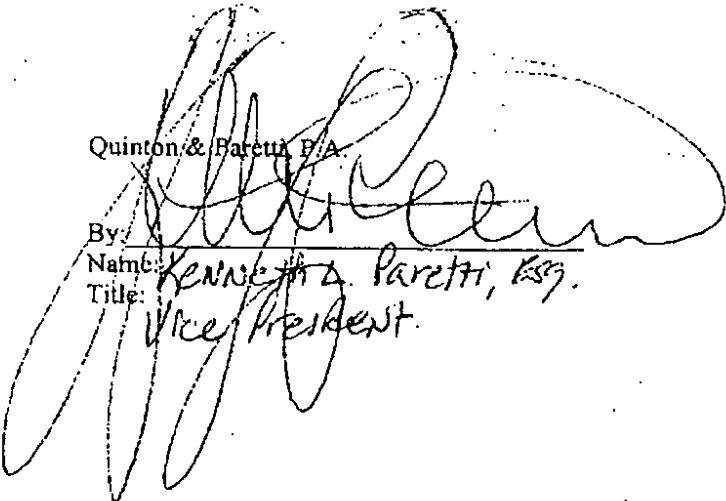 Quinton & Paretti, P.A.
By:
Name: Kenneth A. Paretti, Esq.
Title: Vice President